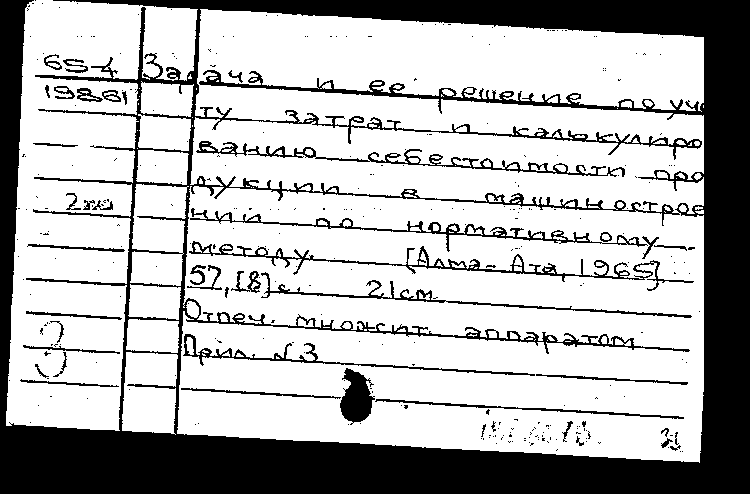 65-4 Задача и ее решение по уче
19861 ту затрат и калюкулиро
ванию себестоимости про
дукции в машинострое
2 экз нии по нормативному
методу. [Алма-Ата, 1965]
57, [8] с. 21 см
Отпеч. множит. аппаратом
З Прил. №3